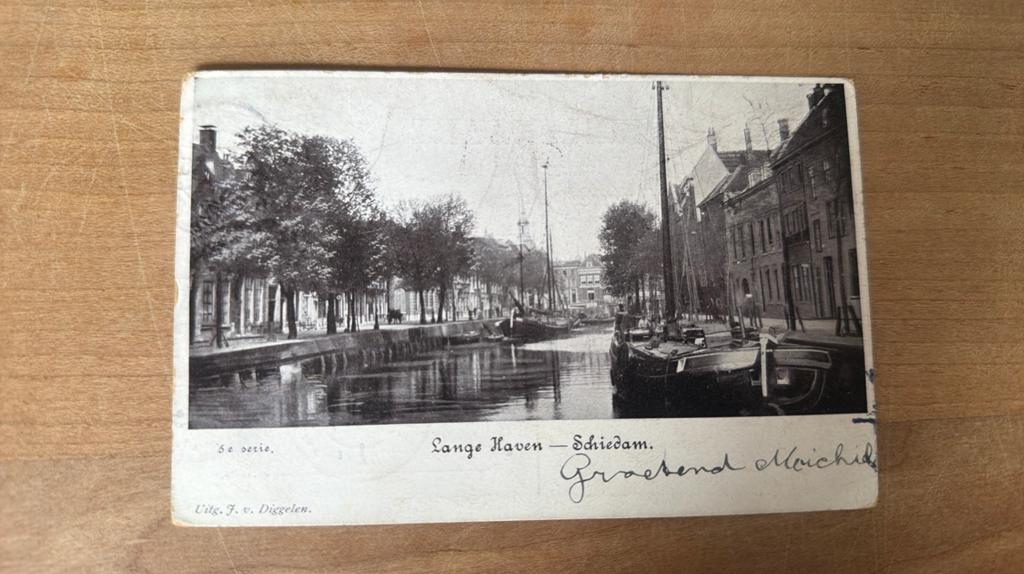 5e serie.
Lange Haven — Schiedam.
Groetend
Uitg. J. v. Diggelen.